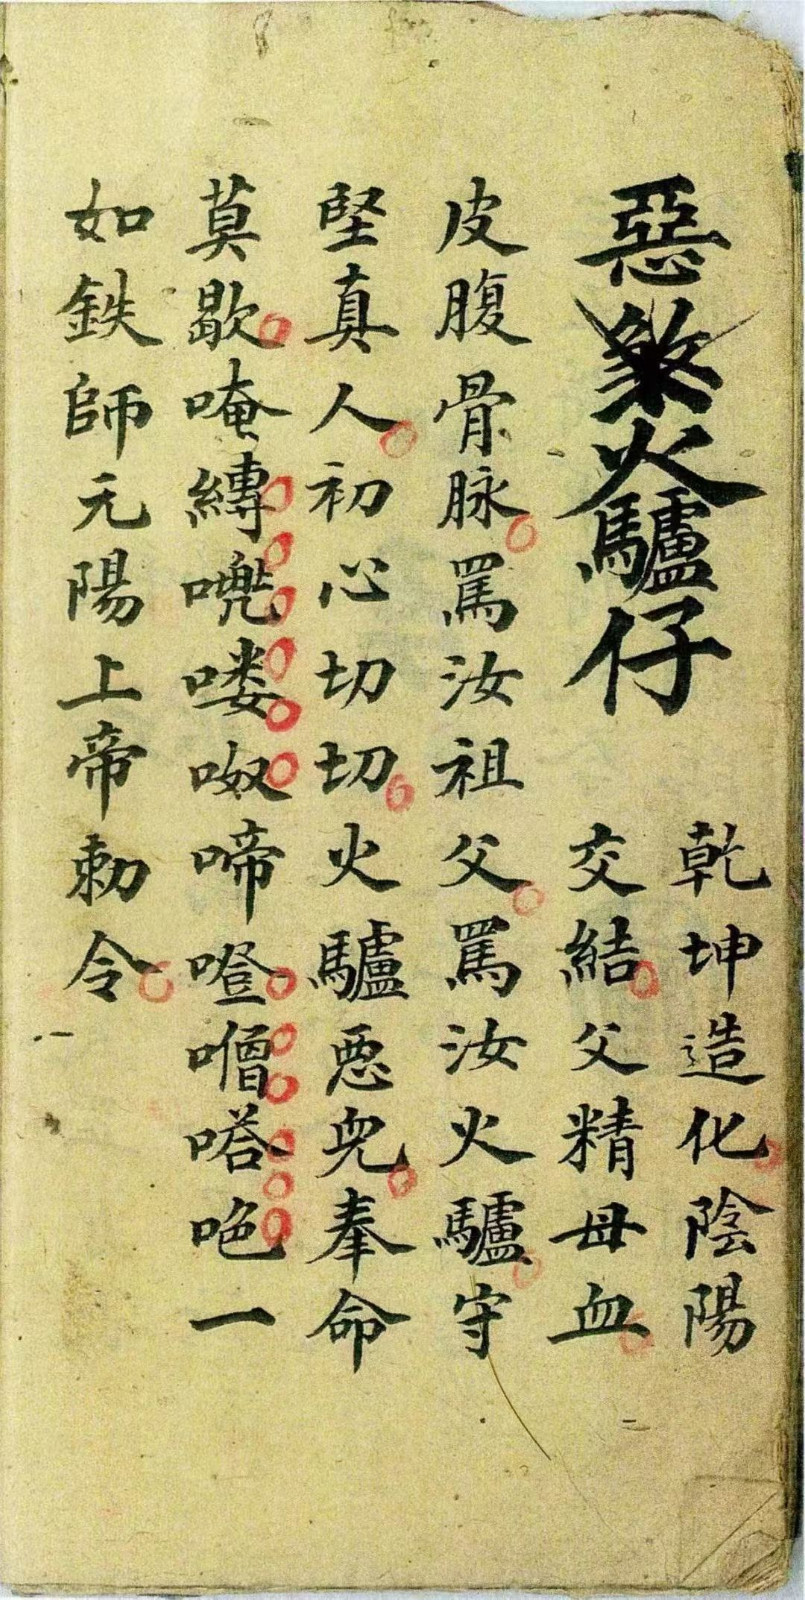 惡煞火驢仔
乾坤造化陰陽
交結父精母血
皮腹骨脉罵汝祖父罵汝火驢守
堅真人初心切切火驢惡兇奉命
莫歇唵縛嘜呶啼噔噌嗒唈一
如鉄師元陽上帝勅令